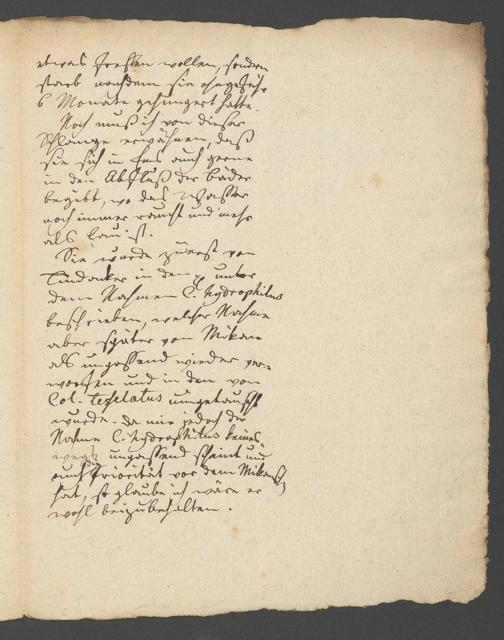 etwas fressen wollen, sondern
starb nachdem sie ohngefähr
6 Monate gehungert hatte.
Noch muß ich von dieser
Schlange erwähnen, daß
sie sich in auch gerne
in den Abfluß der Bäder
begibt, wo das Wasser
noch immer raucht und mehr
als lau ist.
Sie wurde zuerst von
Lindacker in den unter
dem Nahmen C. hydrophilus
beschrieben, welcher Nahme
aber später von Mikan
als unpassend wieder ver-
worfen und in den von
Col. tesselatus umgetauscht
wurde. Da mir jedoch der
Nahme C. hydrophilus keines-
wegs unpassend scheint und
auch die Priorität vor dem Mikans
hat, so glaube ich wäre er
wohl beizubehalten.